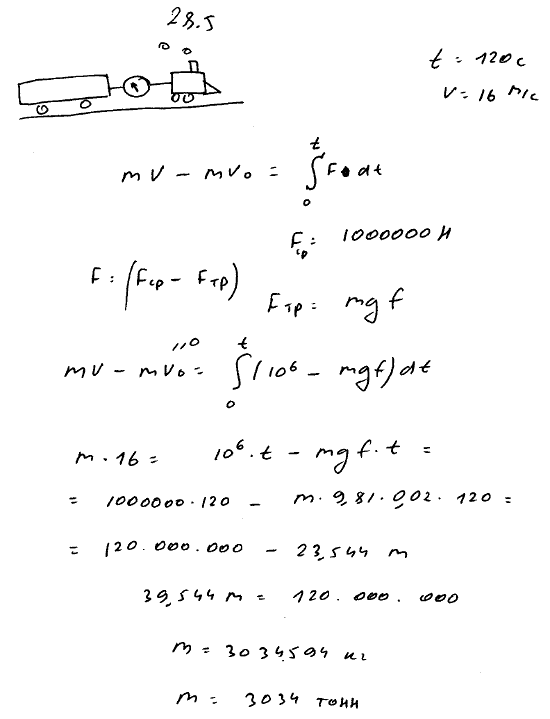 28.5
t = 120 с
V = 16 м/с
mV - mV₀ = ∫₀ᵗ F · dt
Fср = 1000000 Н
F = (Fср - Fтр)
Fтр = mgf
mV - mV₀ = ∫₀ᵗ (10⁶ - mgf) dt
"0
m · 16 = 10⁶ · t - mgf · t =
= 1000000 · 120 - m · 9,81 · 0,02 · 120 =
= 120.000.000 - 23,544 m
39,544 m = 120.000.000
m = 3034594 кг
m = 3034 тонн